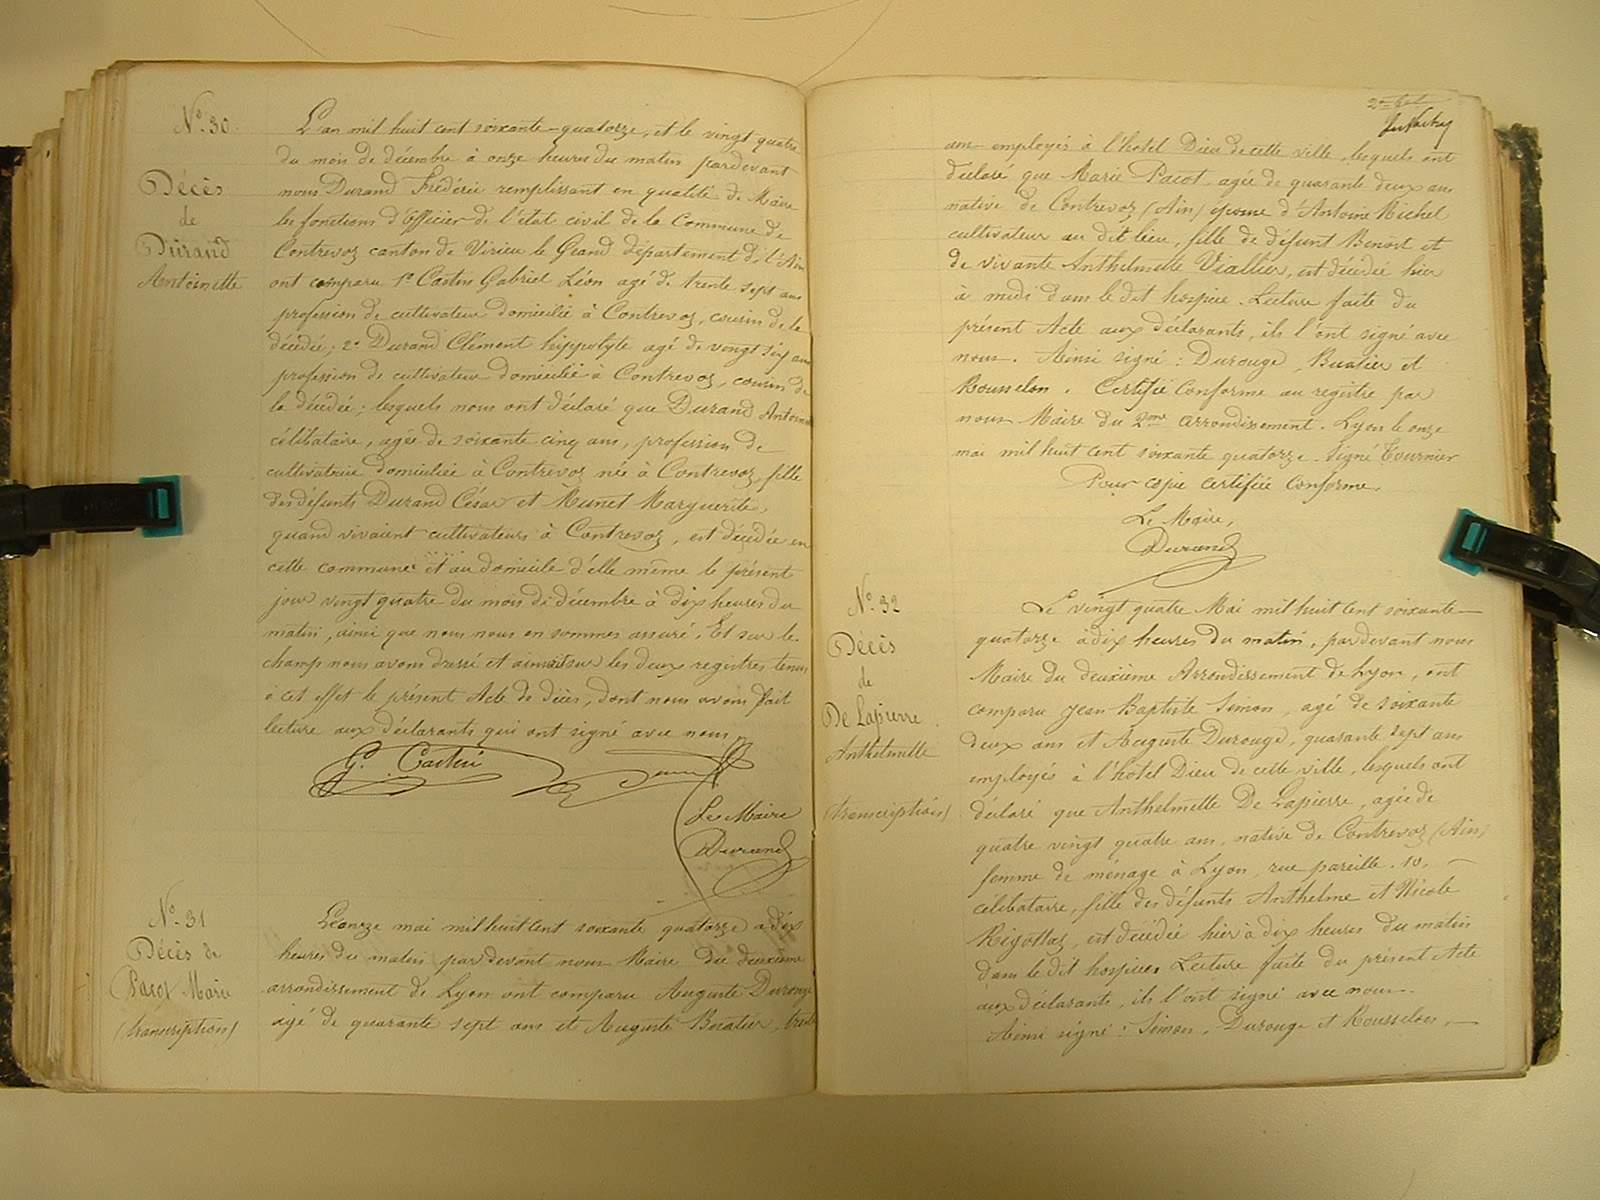 N°. 30.
Décès
de
Durand
Antoinette
L'an mil huit cent soixante-quatorze, et le vingt quatre
du mois de décembre à onze heures du matin pardevant
nous Durand Frédéric remplissant en qualité de Maire
les fonctions d'officier de l'état civil de la Commune de
Contrevoz canton de Virieu le Grand département de l'Ain
ont comparu 1° Castin Gabriel Léon agé de trente sept ans
profession de cultivateur domicilié à Contrevoz, cousin de la
décédée; 2° Durand Clément hippolyte agé de vingt six ans
profession de cultivateur domicilié à Contrevoz, cousin de
la décédée; lesquels nous ont déclaré que Durand Antoinette
célibataire, agée de soixante cinq ans, profession de
cultivatrice domiciliée à Contrevoz née à Contrevoz, fille
des défunts Durand César et Munet Marguerite,
quand vivaient cultivateurs à Contrevoz, est décédée en
cette commune et au domicile d'elle même le présent
jour vingt quatre du mois de décembre à dix heures du
matin, ainsi que nous nous en sommes assuré. Et sur le
champ nous avons dressé et les deux registres tenus
à cet effet le présent Acte de décès, dont nous avons fait
lecture aux déclarants qui ont signé avec nous
G. Castin
Le Maire
Durand
N°. 31
Décès de
Pacot Marie
(transcription)
Le onze mai mil huit cent soixante quatorze à dix
heures du matin par devant nous Maire du deuxième
arrondissement de Lyon ont comparu Auguste Durouge
agé de quarante sept ans et Auguste Buatier, trente
ans employés à l'hôtel Dieu de cette ville, lesquels ont
déclaré que Marie Pacot, agée de quarante deux ans
native de Contrevoz (Ain) épouse d'Antoine Michel
cultivateur au dit lieu, fille de défunt Benoît et
de vivante Anthelmette Viallier, est décédée hier
à midi dans le dit hospice. Lecture faite du
présent Acte aux déclarants, ils l'ont signé avec
nous. Ainsi signé: Durouge, Buatier et
Rousselon. Certifié Conforme au registre par
nous Maire du 2me arrondissement. Lyon le onze
mai mil huit cent soixante quatorze. Signé Tournier
Pour copie Certifiée Conforme.
Le Maire,
Durand
N°. 32
Décès
de
De Lapierre
Anthelmette
(transcription)
Le vingt quatre Mai mil huit cent soixante
quatorze à dix heures du matin, pardevant nous
Maire du deuxième Arrondissement de Lyon, ont
comparu Jean Baptiste Simon, agé de soixante
deux ans et Auguste Durouge, quarante sept ans
employés à l'hôtel Dieu de cette ville, lesquels ont
déclaré que Anthelmette De Lapierre, agée de
quatre vingt quatre ans, native de Contrevoz (Ain)
femme de ménage à Lyon, rue pareille. 10.
célibataire, fille des défunts Anthelme et Nicole
Rigottaz, est décédée hier à dix heures du matin
dans le dit hospice. Lecture faite du présent Acte
aux déclarants, ils l'ont signé avec nous.
Ainsi signé: Simon, Durouge et Rousselon,